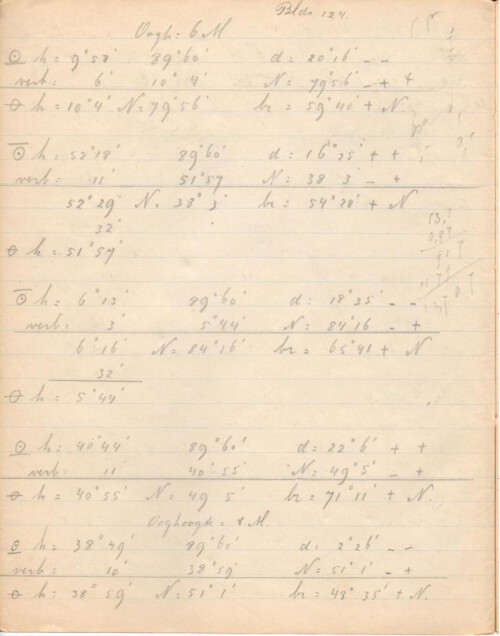 Blds 124.
Oogh = 6 M
☉ h = 9° 52' 89° 60' d = 20° 16' - -
verb = 6' 10° 4' N = 79° 56' - +
⊖ h = 10° 4' N = 79° 56' br = 59° 40' + N
☉ h = 52° 18' 89° 60' d = 16° 25' + +
verb = 11' 51° 57 N = 38 3' - +
52° 29' N = 38° 3' br = 54° 28' + N
32'
⊖ h = 51° 57'
☉ h = 6° 13' 89° 60' d = 18° 35' - -
verb = 3' 5° 44' N = 84° 16 - +
6° 16' N = 84° 16' br = 65° 41 + N
32'
⊖ h = 5° 44'
☉ h = 40° 44' 89° 60' d = 22° 6' + +
verb = 11' 40° 55' N = 49° 5' - +
⊖ h = 40° 55' N = 49 5' br = 71° 11' + N.
Ooghoogte = 8 M.
☉ h = 38° 49' 89° 60' d = 2° 26' - -
verb = 10' 38° 59' N = 51° 1' - +
⊖ h = 38° 59' N = 51° 1' br = 48° 35' + N.